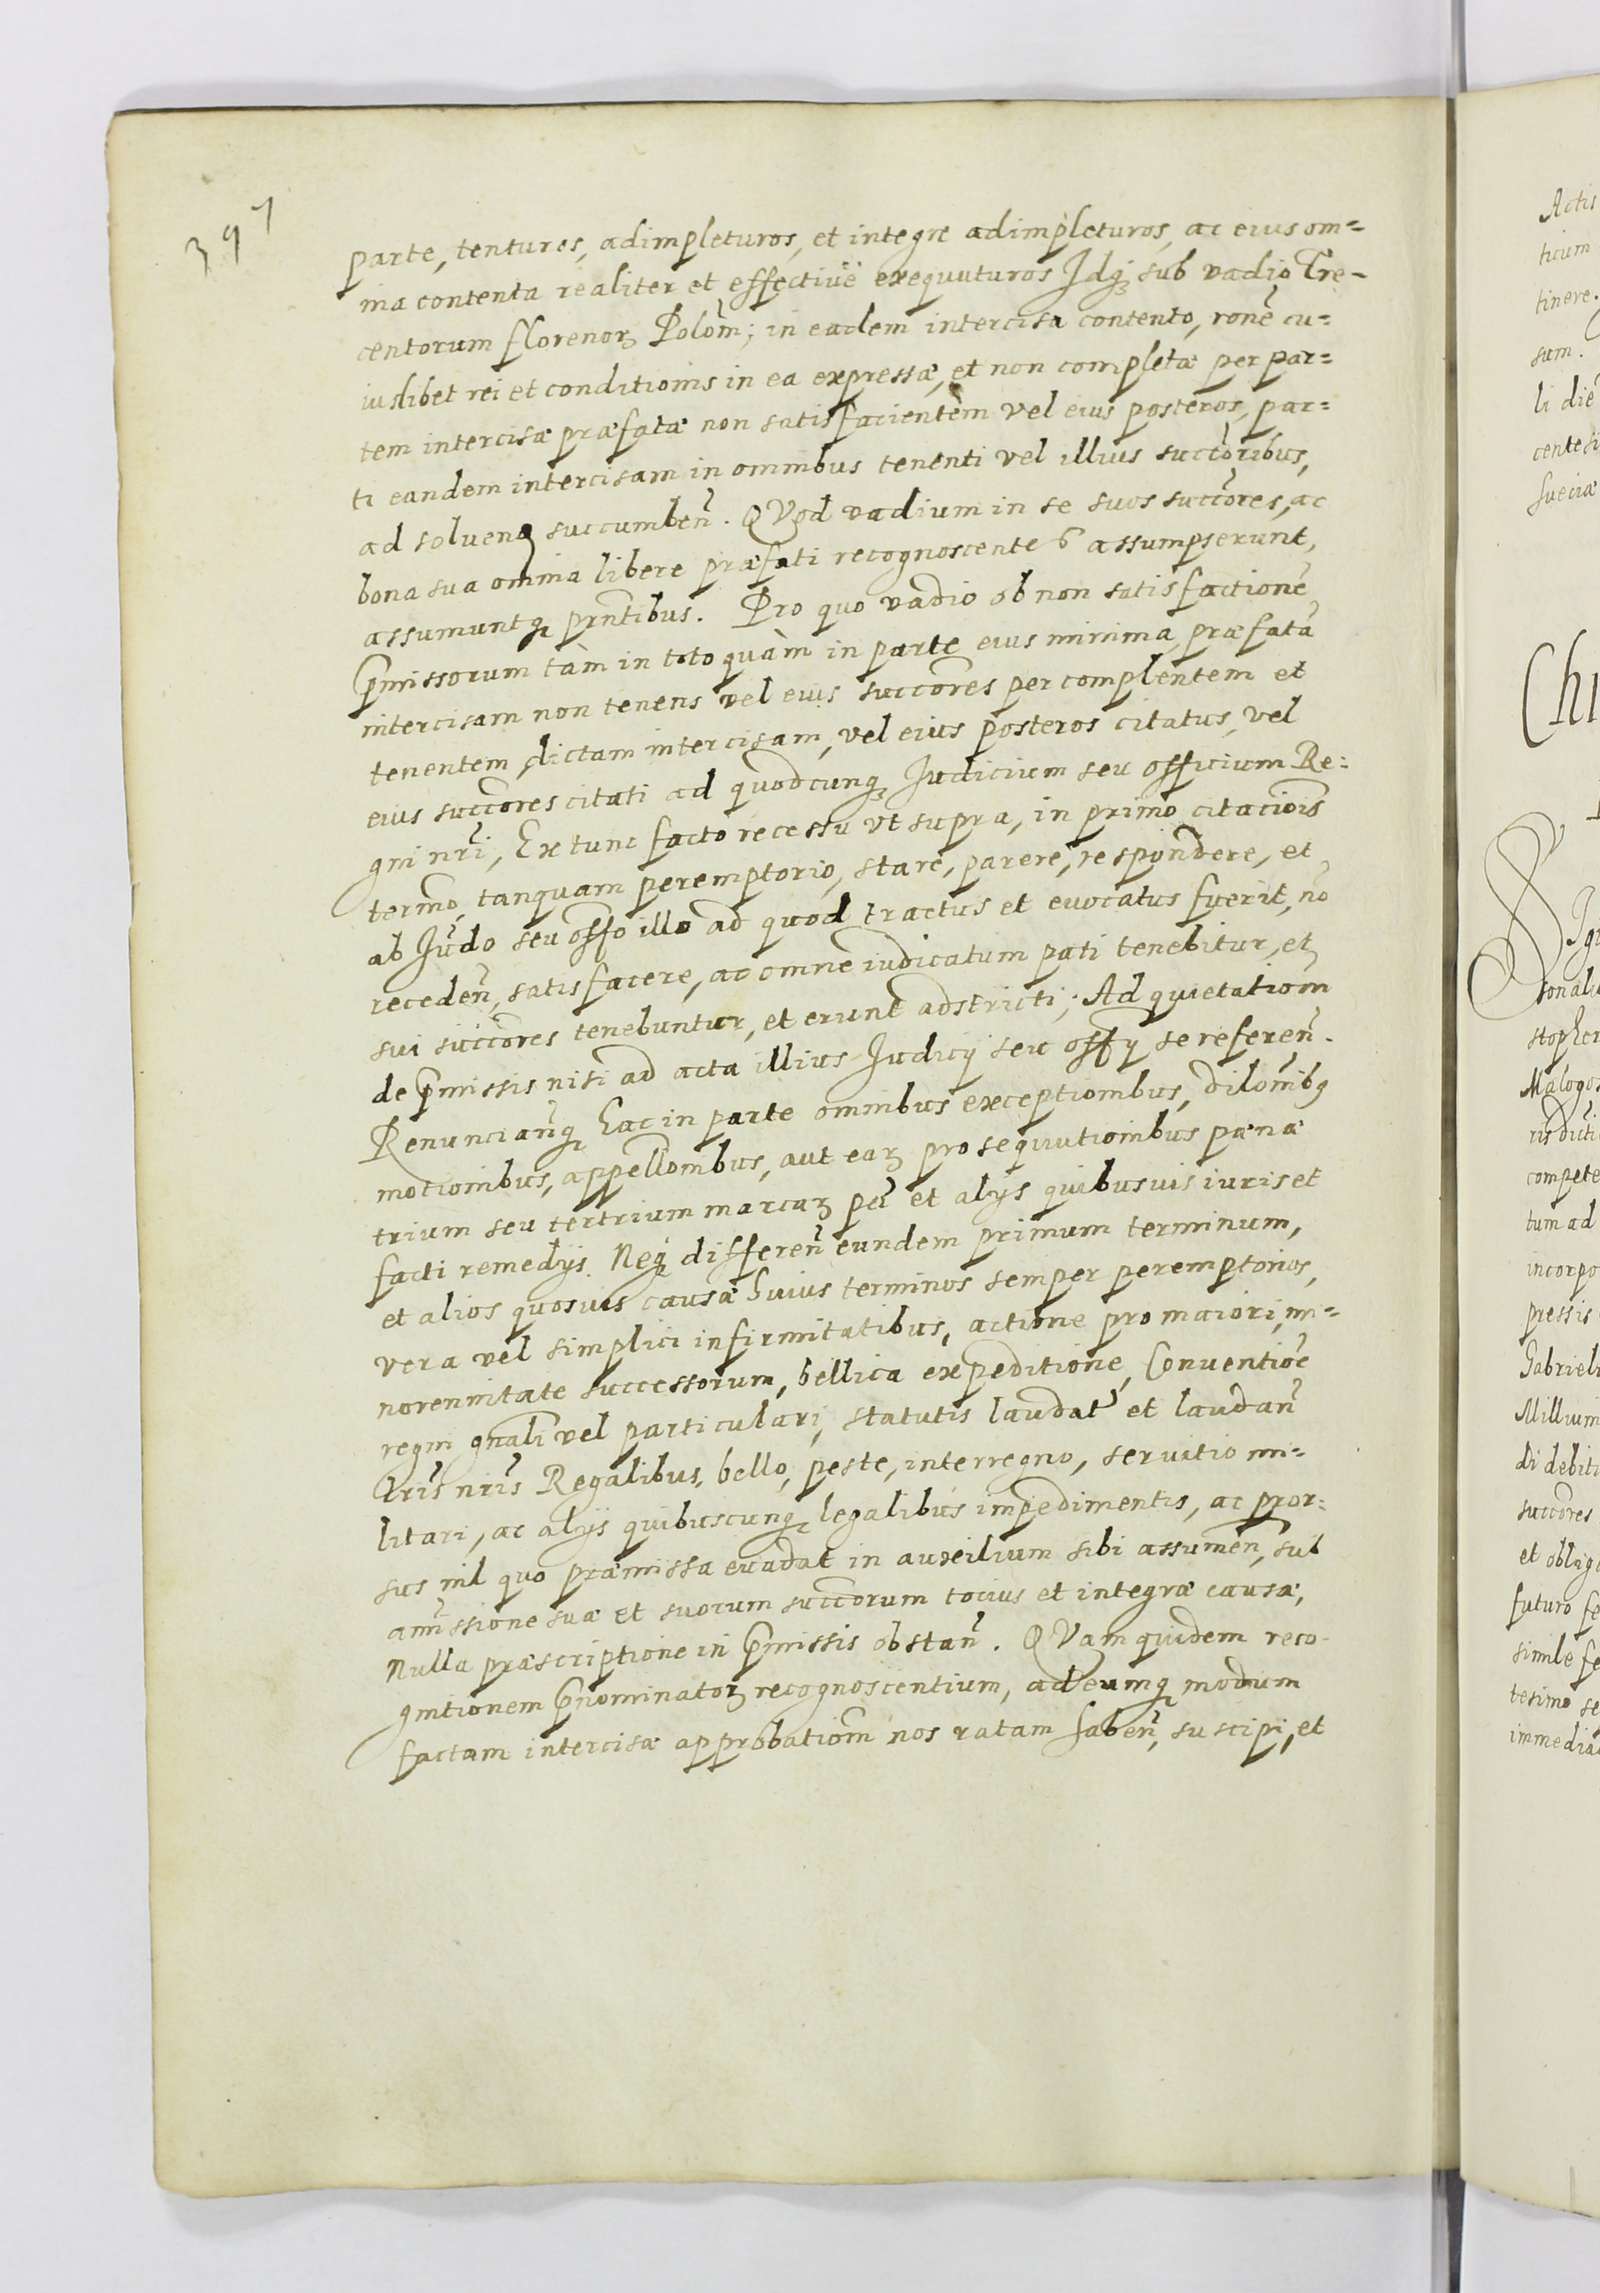 397
parte, tentures, adimpleturos, et integre adimpleturos, ac eius om=
nia contenta realiter et effectiue exequuturos Idq; sub vadio Tre-
centorum florenorꝫ Polōm; in eadem intercisa contento, ronē cu=
iuslibet rei et conditionis in ea expressæ, et non completæ per par=
tem intercisæ præfatæ non satisfacientem vel eius posteros, par=
ti eandem intercisam in omnibus tenenti vel illius succ̄oribus,
ad soluenđ succumbeñ. QVod vadium in se suos succ̄ores, ac
bona sua omnia libere præfati recognoscentes assumpserunt,
assumuntq; prn̄tibus. Pro quo vadio ob non satisfactionē
p̄missorum tàm in toto quàm in parte eius minima, præfatā
intercisam non tenens vel eius succ̄ores per complentem et
tenentem dictam intercisam, vel eius posteros citatus, vel
eius succ̄ores citati ad quodcunq; Iudicium seu officium Re:
gni nr̄i, Ex tunc facto recessu vt supra, in primo citaciōis
termō, tanquam peremptorio, stare, parere, respondere, et
ab Iud̄o seu off̄o illo ad quod tractus et euocatus fuerit, nō
recedeñ, satisfacere, ac omne iudicatum pati tenebitur, et
sui succ̄ores tenebuntur, et erunt adstricti; Ad quietatiōm
de p̄missis nisi ad acta illius Iudicij seu off̄ij se refereñ.
Renunciañq; hac in parte omnibus exceptionibus, dilōnibꝫ
motionibus, appellōnibus, aut earꝫ prosequutionibus pœnæ
trium seu tertrium marcarꝫ pœ̄ et alijs quibusuis iuris et
facti remedijs. Neq; differeñ eundem primum terminum,
et alios quosuis causæ huius terminos semper peremptorios,
vera vel simplici infirmitatibus, actione pro maiori, mi=
norennitate successorum, bellica expeditione, Conuentiōe
regni gn̄ali vel particulari, statutis laudat̄ et laudañ
lr̄is nr̄is Regalibus, bello, peste, interregno, seruitio mi=
litari, ac alijs quibuscunq; legalibus impedimentis, ac pror:
sus nil quo præmissa euadat in auxilium sibi assumeñ, sub
amissione suæ et suorum succ̄orum tocius et integræ causæ,
Nulla præscriptione in p̄missis obstañ. QVam quidem reco-
gnitionem p̄nominatorꝫ recognoscentium, ad eumq; modum
factam intercisæ approbatiōm nos ratam habeñ, suscipi, et